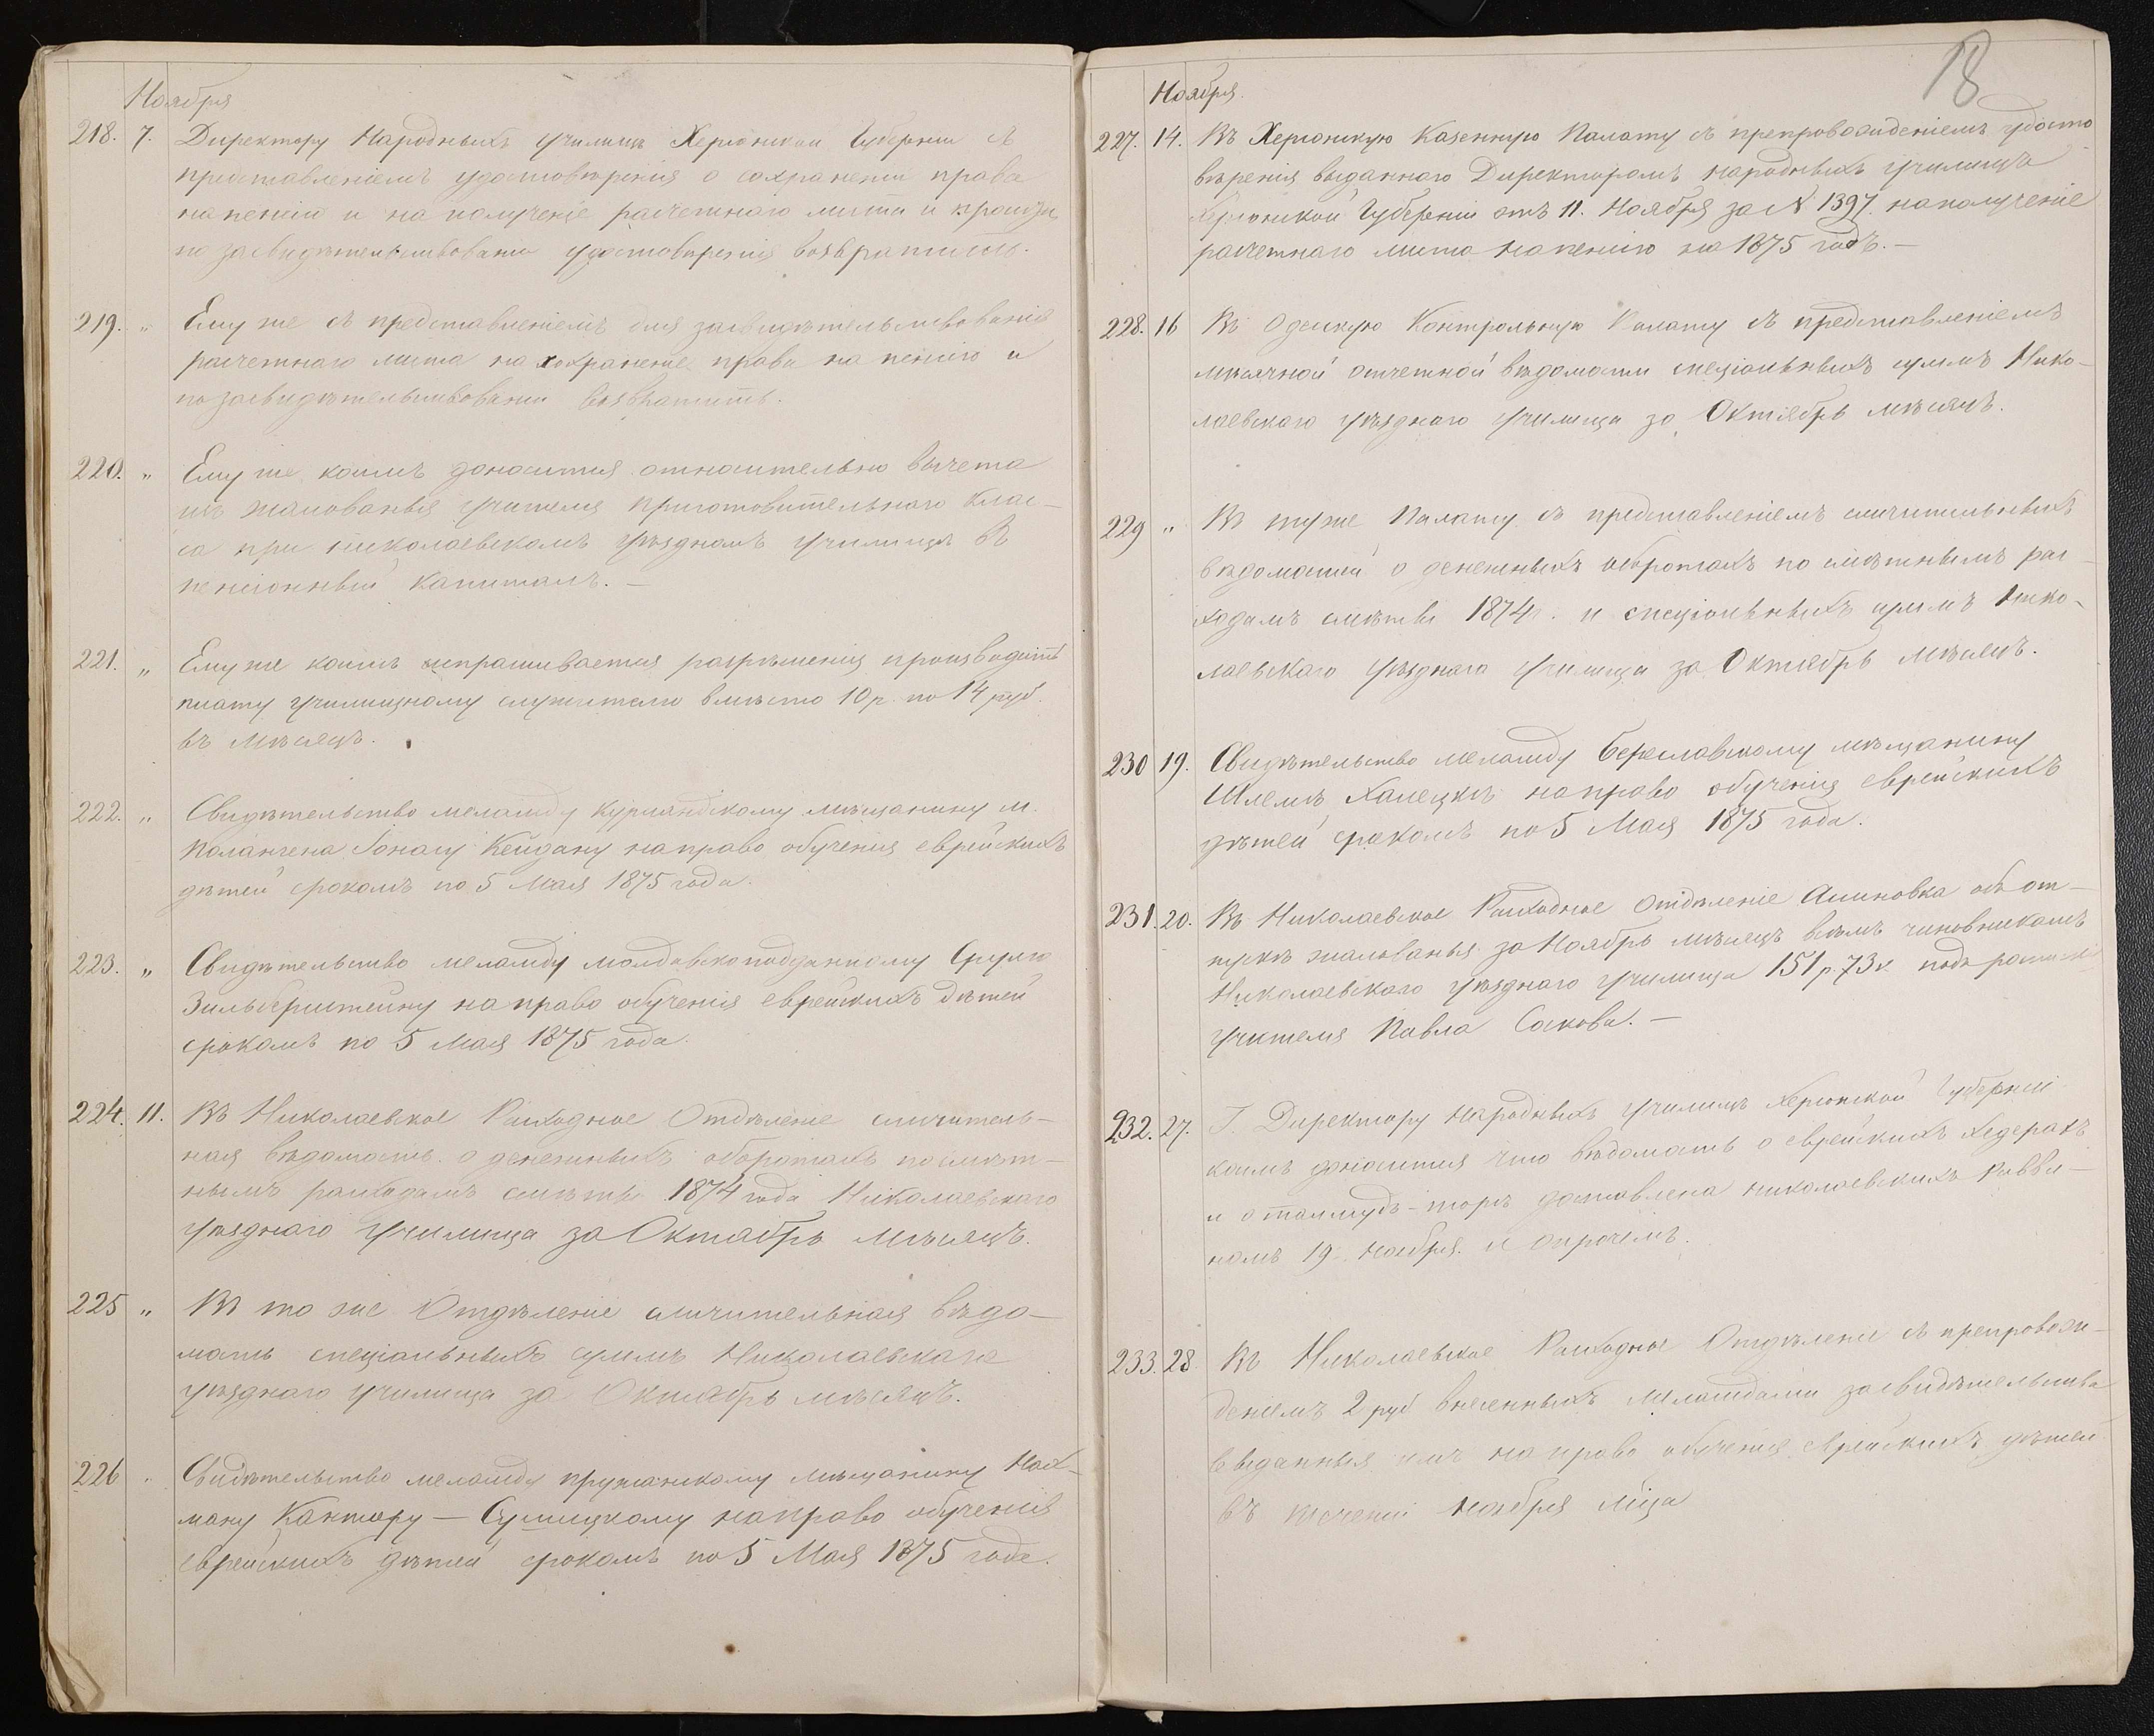 Ноября
218. 7. Директору Народныхъ Училищъ Херсонской Губерніи съ
представленіемъ удостовѣренія о сохраненіи права
на пенсію и на полученіе расчетнаго листа и
по засвидѣтельствованіи удостовѣренія возвратить.
219. „ Ему же съ представленіемъ для засвидѣтельствованія
расчетнаго листа на сохраненіе права на пенсію и
по засвидѣтельствованіи возвратить.
220. „ Ему же, коимъ доносится относительно вычета
изъ жалованья учителя приготовительнаго клас-
са при Николаевскомъ уѣздномъ училищѣ въ
пенсіонный капиталъ. —
221. „ Ему же коимъ испрашивается разрѣшенія производить
плату училищному служителю вмѣсто 10 р. по 14 руб.
въ мѣсяцъ.
222. „ Свидѣтельство меламду Курляндскому мѣщанину м.
Полангена Іонасу Кейдану на право обученія еврейскихъ
дѣтей срокомъ по 5 Мая 1875 года.
223. „ Свидѣтельство меламду молдавскоподданному Срулю
Зильберштейну на право обученія еврейскихъ дѣтей
срокомъ по 5 Мая 1875 года.
224. 11. Въ Николаевское Расходное Отдѣленіе сличитель-
ная вѣдомость о денежныхъ оборотахъ по смѣт-
нымъ расходамъ смѣты 1874 года Николаевскаго
уѣзднаго училища за Октябрь мѣсяцъ.
225 „ Въ то же Отдѣленіе сличительная вѣдо-
мость спеціальныхъ суммъ Николаевскаго
уѣзднаго училища за Октябрь мѣсяцъ.
226 „ Свидѣтельство меламду пружанскому мѣщанину Нах-
ману Кантору — Сумицкому на право обученія
еврейскихъ дѣтей срокомъ по 5 Мая 1875 года.
18
Ноября.
227. 14. Въ Херсонскую Казенную Палату съ препровожденіемъ удосто-
вѣренія выданнаго Директоромъ народныхъ училищъ
Херсонской Губерніи отъ 11. Ноября за № 1397. на полученіе
расчетнаго листа на пенсію на 1875 годъ. —
228. 16 Въ Одескую Контрольную Палату съ представленіемъ
мѣсячной отчетной вѣдомости спеціальныхъ суммъ Нико-
лаевскаго уѣзднаго училища за Октябрь мѣсяцъ.
229 „ Въ туже Палату съ представленіемъ сличительныхъ
вѣдомостей о денежныхъ оборотахъ по смѣтнымъ рас-
ходамъ смѣты 1874 г. и спеціальныхъ суммъ Нико-
лаевскаго уѣзднаго училища за Октябрь мѣсяцъ.
230 19. Свидѣтельство меламду Бериславскому мѣщанину
Шлемѣ Халецкъ на право обученія еврейскихъ
дѣтей срокомъ по 5 Мая 1875 года.
231. 20. Въ Николаевское Расходное Отдѣленіе Асиновка объ от-
пускѣ жалованья за Ноябрь мѣсяцъ всѣмъ чиновникамъ
Николаевскаго уѣзднаго училища 151 р. 73 к. подъ росписку
учителя Павла Сокова. —
232. 27. Г. Директору народныхъ училищъ Херсонской Губерніи
коимъ доносится что вѣдомость о еврейскихъ хедерахъ
и о талмудъ-торѣ доставлена николаевскихъ Равви-
номъ 19 Ноября. и опрочемъ.
233. 28. Въ Николаевское Расходное Отдѣленіе съ препровож-
деніемъ 2 руб внесенныхъ меламдами за свидѣтельства
выданныя имъ на право обученія еврейскихъ дѣтей
въ теченіи ноября мѣца